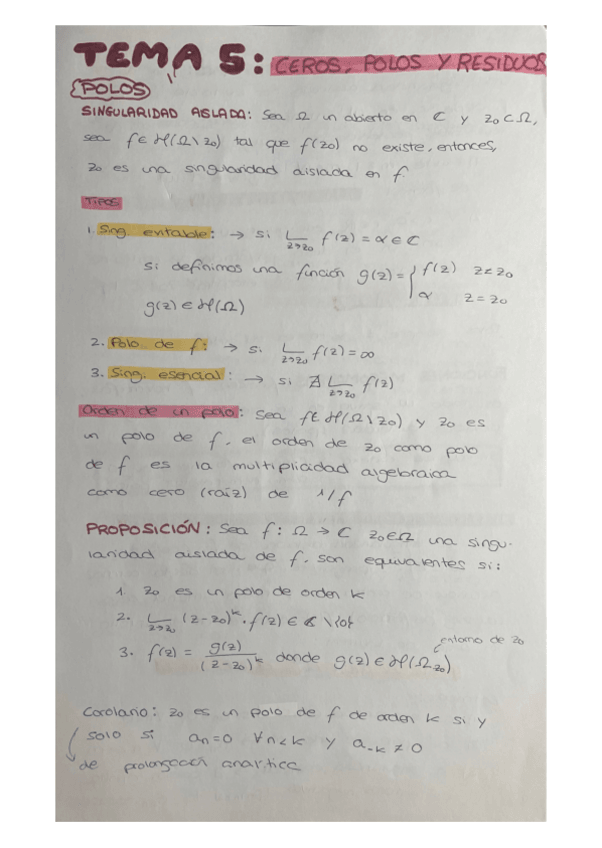 TEMA 5: CEROS, POLOS Y RESIDUOS
POLOS
SINGULARIDAD AISLADA: Sea Ω un abierto en ℂ y z₀ ⊂ Ω,
sea f ∈ ℋ(Ω\z₀) tal que f(z₀) no existe, entonces,
z₀ es una singularidad aislada en f.
TIPOS
1. Sing. evitable: → si L f(z) = α ∈ ℂ
z→z₀
si definimos una función g(z) = { f(z) z≠z₀
α z = z₀
g(z) ∈ ℋ(Ω)
2. Polo de f: → si L f(z) = ∞
z→z₀
3. Sing. esencial: → si ∄ L f(z)
z→z₀
Orden de un polo: Sea f ∈ ℋ(Ω\z₀) y z₀ es
un polo de f, el orden de z₀ como polo
de f es la multiplicidad algebraica
como cero (raíz) de 1/f
PROPOSICIÓN: Sea f: Ω → ℂ z₀∈Ω una singu-
laridad aislada de f, son equivalentes si:
1. z₀ es un polo de orden k
2. L (z-z₀)ᵏ · f(z) ∈ ℂ \ {0}
z→z₀
entorno de z₀
3. f(z) = g(z) / (z-z₀)ᵏ donde g(z) ∈ ℋ(Ω z₀)
Corolario: z₀ es un polo de f de orden k si y
solo si aₙ=0 ∀n<k y a₋ₖ ≠ 0
de prolongación analítica